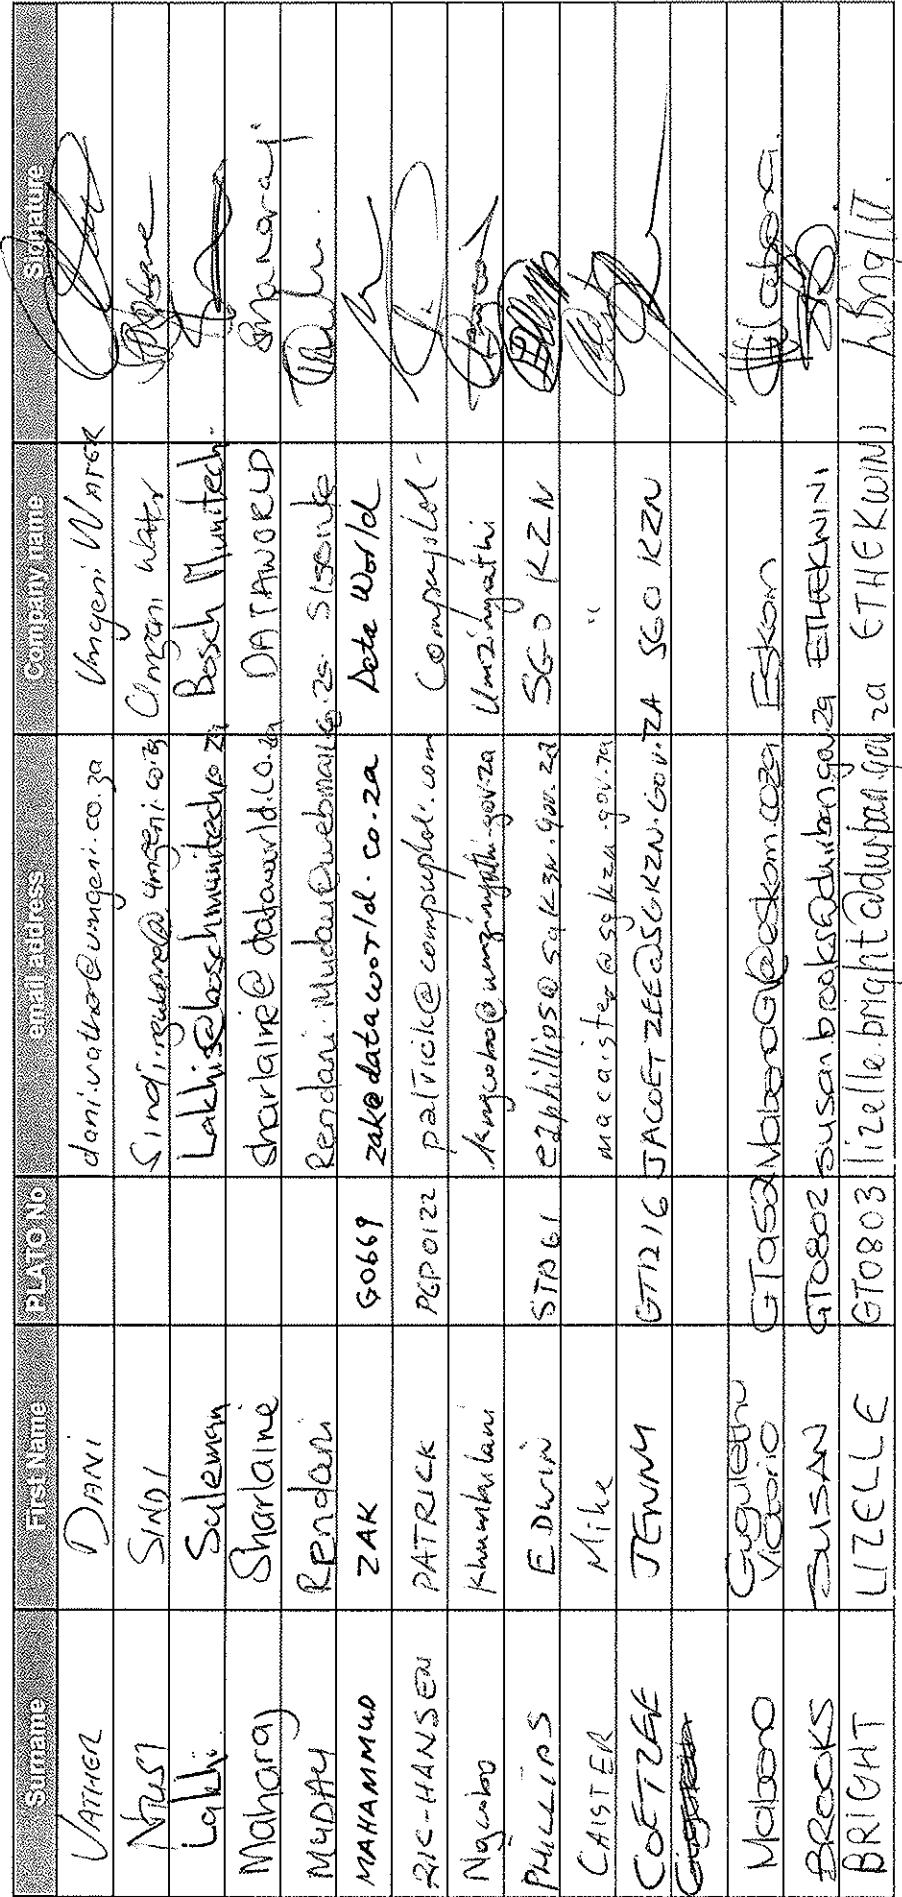 Surname First Name PLATO No email address Company name Signature
VATHER DANI danivather@umgeni.co.za Umgeni WATER
SINDI Umgeni Water
Lakhi Suleman Lakhis@boschmunitech.co.za Bosch Munitech
Maharaj Sharlaine sharlaine@dataworld.co.za DATAWORLD SMaharaj
MUDAU Rendani Rendani.Mudau@webmail.co.za Sisonke
MAHAMMUD ZAK G0669 zak@dataworld.co.za Data World
RIC-HANSEN PATRICK PGP0122 patrick@compuplot.com Compuplot
Ngcobo Khumbulani kngcobo@umzinyathi.gov.za Umzinyathi
PHILLIPS EDWIN ephillips@sgkzn.gov.za SGO KZN
CAISTER Mike macaister@sgkzn.gov.za "
COETZEE JENNY GT1216 JACOETZEE@SGKZN.GOV.ZA SGO KZN
Mabaso Gugulethu
Victoria Eskom
BROOKS SUSAN GT0802 susan.brooks@durban.gov.za ETHEKWINI
BRIGHT LIZELLE GT0803 lizelle.bright@durban.gov.za ETHEKWINI LBright